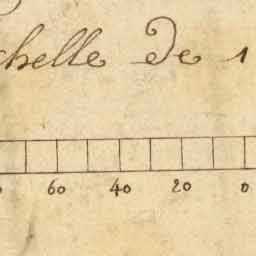 chelle de 1
60 40 20 0